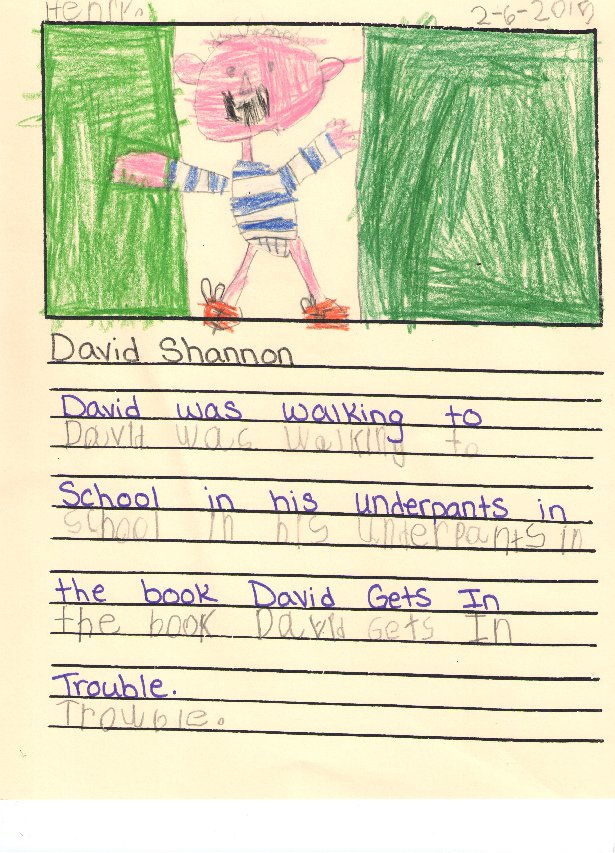 Henry
2-6-201
David Shannon
David was walking to
David was walking to
School in his underpants in
school in his underpants in
the book David Gets In
the book David Gets In
Trouble.
Trouble.